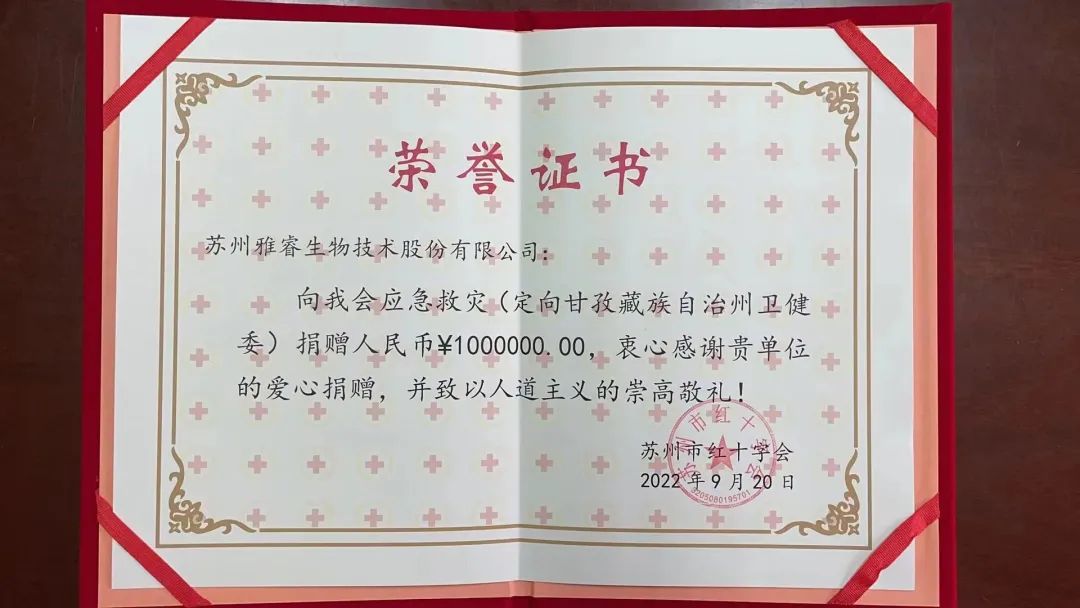 荣誉证书
苏州雅睿生物技术股份有限公司:
向我会应急救灾(定向甘孜藏族自治州卫健
委)捐赠人民币¥1000000.00,衷心感谢贵单位
的爱心捐赠,并致以人道主义的崇高敬礼!
苏州市红十字会
2022年9月20日
苏州市红十字会
3205080195701